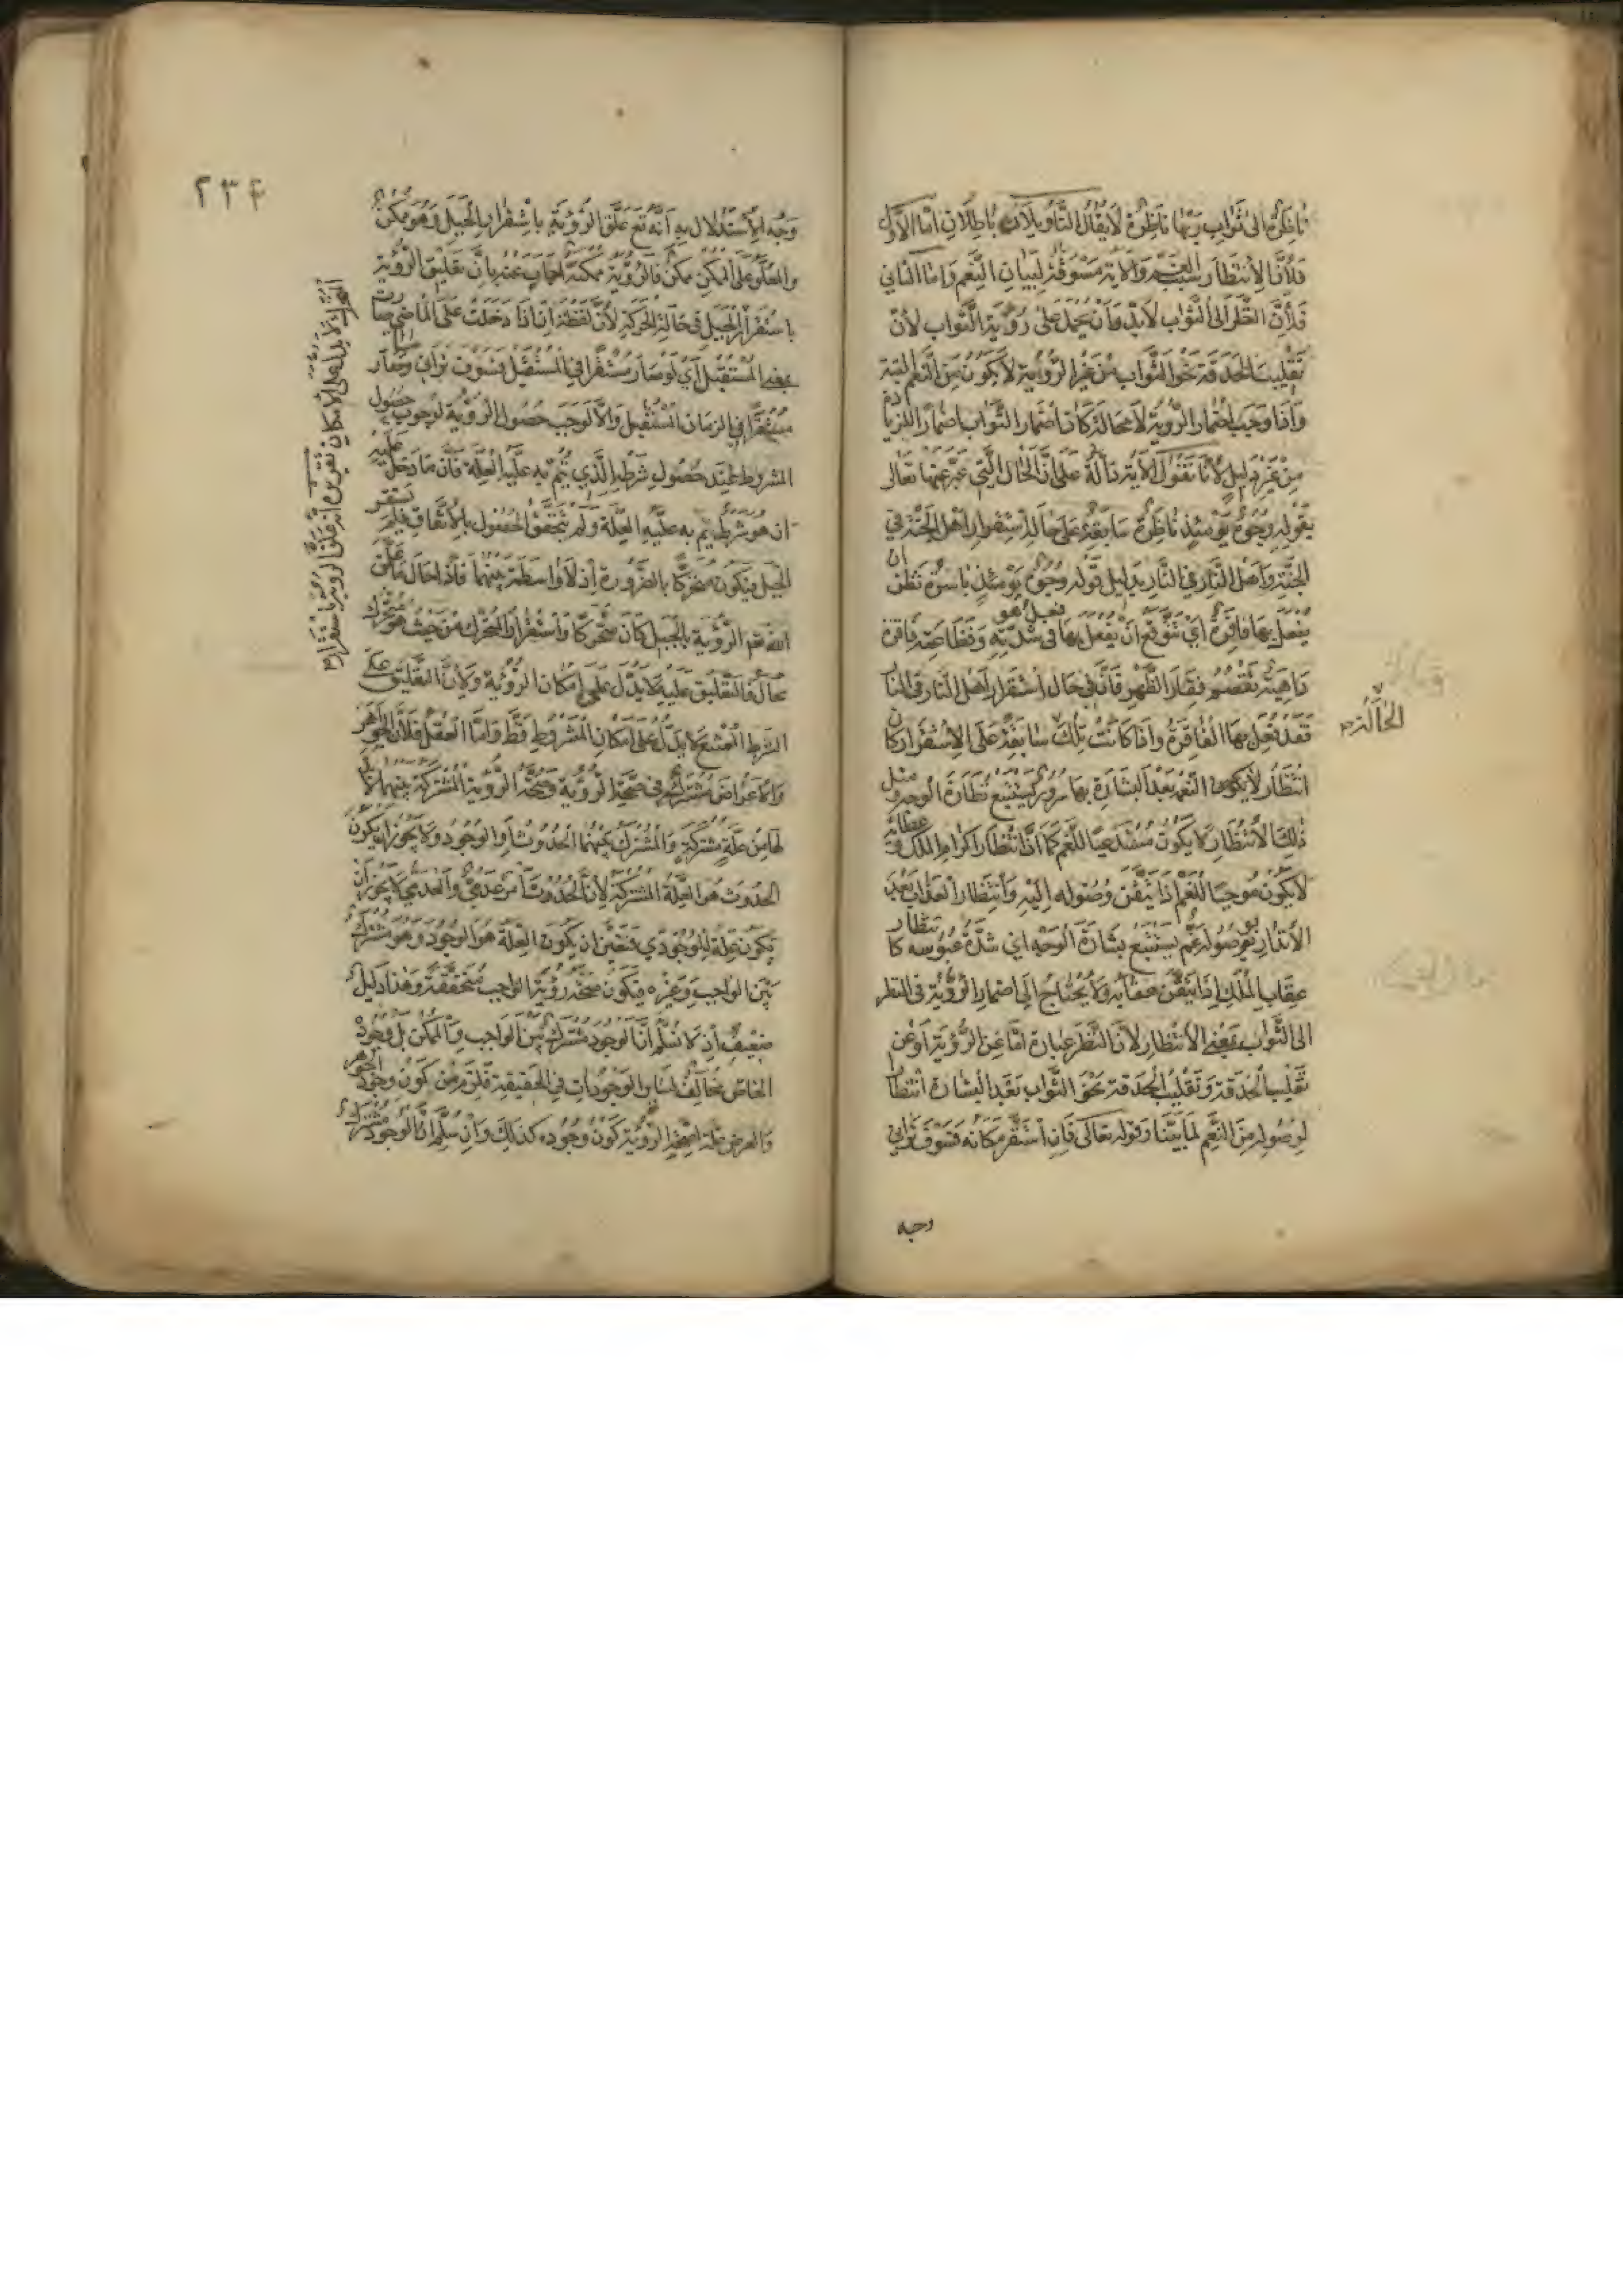 ناظرة الى ثواب ربها ناظرة لا يقال التأويلان باطلان اما الاول
فلأن الانتظار سبب الغم والآية مسوقة لبيان النعم واما الثاني
فلأن النظر الى الثواب لا بد وأن يحمل على رؤية الثواب لأن
تقليب الحدقة نحو الثواب من غير الرؤية لا يكون من النعم البتة
واذا وجب اضمار الرؤية لا محالة كان اضمار الثواب اضمارا لزيادة
من غير دليل لأنا نقول الآية دالة على أن الحال التي عبر عنها تعالى
بقوله وجوه يومئذ ناظرة سابقة على حالة استقرار اهل الجنة في
الجنة واهل النار في النار بدليل قوله وجوه يومئذ باسرة تظن ان
يفعل بها فاقرة أي تتوقع أن يفعل بها فعل هو في شدته وفظاعته فاقرة
داهية تقصم فقار الظهر فان في حال استقرار اهل النار في النار
فقد فعل بها الفاقرة واذا كانت تلك سابقة على الاستقرار كان
الحالة
انتظار النعم بعد البشارة بها سرور يستتبع نضارة الوجه ومثل
ذلك الانتظار لا يكون مستدعيا للغم كما أن انتظار اكرام الملك وعطائه
لا يكون موجبا للغم اذا تيقن وصوله اليه وانتظار العذاب بعد
الانذار بوصوله غم يستتبع بشارة الوجه اي شدة عبوسه كانتظار
عقاب الملك إذا تيقن عقابه ولا يحتاج الى اضمار الرؤية في النظر
الى الثواب بمعنى الانتظار لأن النظر عبارة اما عن الرؤية أو عن
تقليب الحدقة وتقليب الحدقة نحو الثواب بعد البشارة انتظار
لوصوله من النعم لما بينا وقوله تعالى فان استقر مكانه فسوف تراني
وجه
٢٣٤
وجه الاستدلال به أنه تع علق الرؤية باستقرار الجبل وهو ممكن
والمعلق على الممكن ممكن فالرؤية ممكنة اجاب عنه بان تعليق الرؤية
باستقرار الجبل في حالة الحركة لأن لفظة ان اذا دخلت على الماضي صارت
بمعنى المستقبل أي لو صار مستقرا في المستقبل فسوف تراني وما صار
مستقرا في الزمان المستقبل والا لوجب حصول الرؤية لوجوب حصول
المشروط عند حصول شرطه الذي يتم به علية العلة فان ما دخل عليه
ان هو شرط يتم به علية العلة ولم يتحقق الحصول بالاتفاق فلم يستقر
الجبل فيكون متحركا بالضرورة اذ لا واسطة بينهما فاذا حال ما علق
الله تع الرؤية بالجبل كان متحركا واستقرار المتحرك من حيث هو متحرك
محال فالتعليق عليه لا يدل على إمكان الرؤية ولأن التعليق على
الشرط الممتنع لا يدل على امكان المشروط فقط واما العقل فلأن الجواهر
والاعراض مشتركة في صحة الرؤية وصحة الرؤية المشتركة بينهما لا بد
لها من علة مشتركة والمشترك بينهما الحدوث او الوجود ولا يجوز ان يكون
الحدوث هو العلة المشتركة لأن الحدوث أمر عدمي والعدمي لا يجوز أن
يكون علة للوجودي فتعين ان يكون العلة هو الوجود وهو مشترك
بين الواجب وغيره فيكون صحة رؤية الواجب متحققة وهذا دليل
ضعيف اذ لا نسلم ان الوجود مشترك بين الواجب والممكن بل وجوده
الخاص مخالف لسائر الوجودات في الحقيقة فلا يلزم من كون وجود الجوهر
والعرض علة لصحة الرؤية كون وجوده كذلك وان سلم ان الوجود مشترك